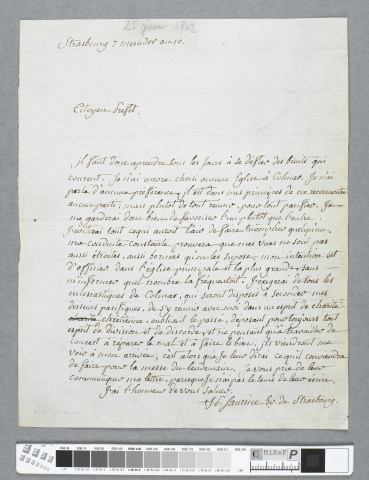 26 juin 1802
Strasbourg 7 messidor an 10.
Citoyen Prefet.
Il faut donc aprendre tous les jours à se défier des bruits qui
courent. Je n'ai encore choisi aucune Eglise à Colmar. Je n'ai
parlé d'aucune préférence, il est dans mes principes de ne reconnoitre
aucun parti; mais plutot de tout reunir, pour tout pacifier. Je
me garderai donc bien de favoriser l'un plutot que l'autre.
J'éviterai tout ce qui auroit l'air de faire triompher quelqu'un,
ma conduite constante prouvera que mes vues ne sont pas
aussi étroites, aussi bornées qu'on les supose; mon intention est
d'officier dans l'église principale et la plus grande, sans
m'informer quel nombre la fréquentoit. J'exigerai de tous les
ecclesiastiques de Colmar, qui seront disposés à seconder mes
desseins pacifiques, de s'y reunir avec moi dans un esprit de charité
chrétienne, oubliant le passé, déposant pour toujours tout
esprit de division et de discorde, et ne pensant qu'à travailler de
concert à réparer le mal et à faire le bien. ils viendront me
voir à mon arrivée; c'est alors que je leur dirai ce qu'il conviendra
de faire pour la messe du lendemain. Je vous prie de leur
communiquer ma lettre, parceque je n'ai pas le tems de leur écrire.
J'ai l'honneur de vous saluer.
Saurine Ev. de Strasbourg.
MIReF